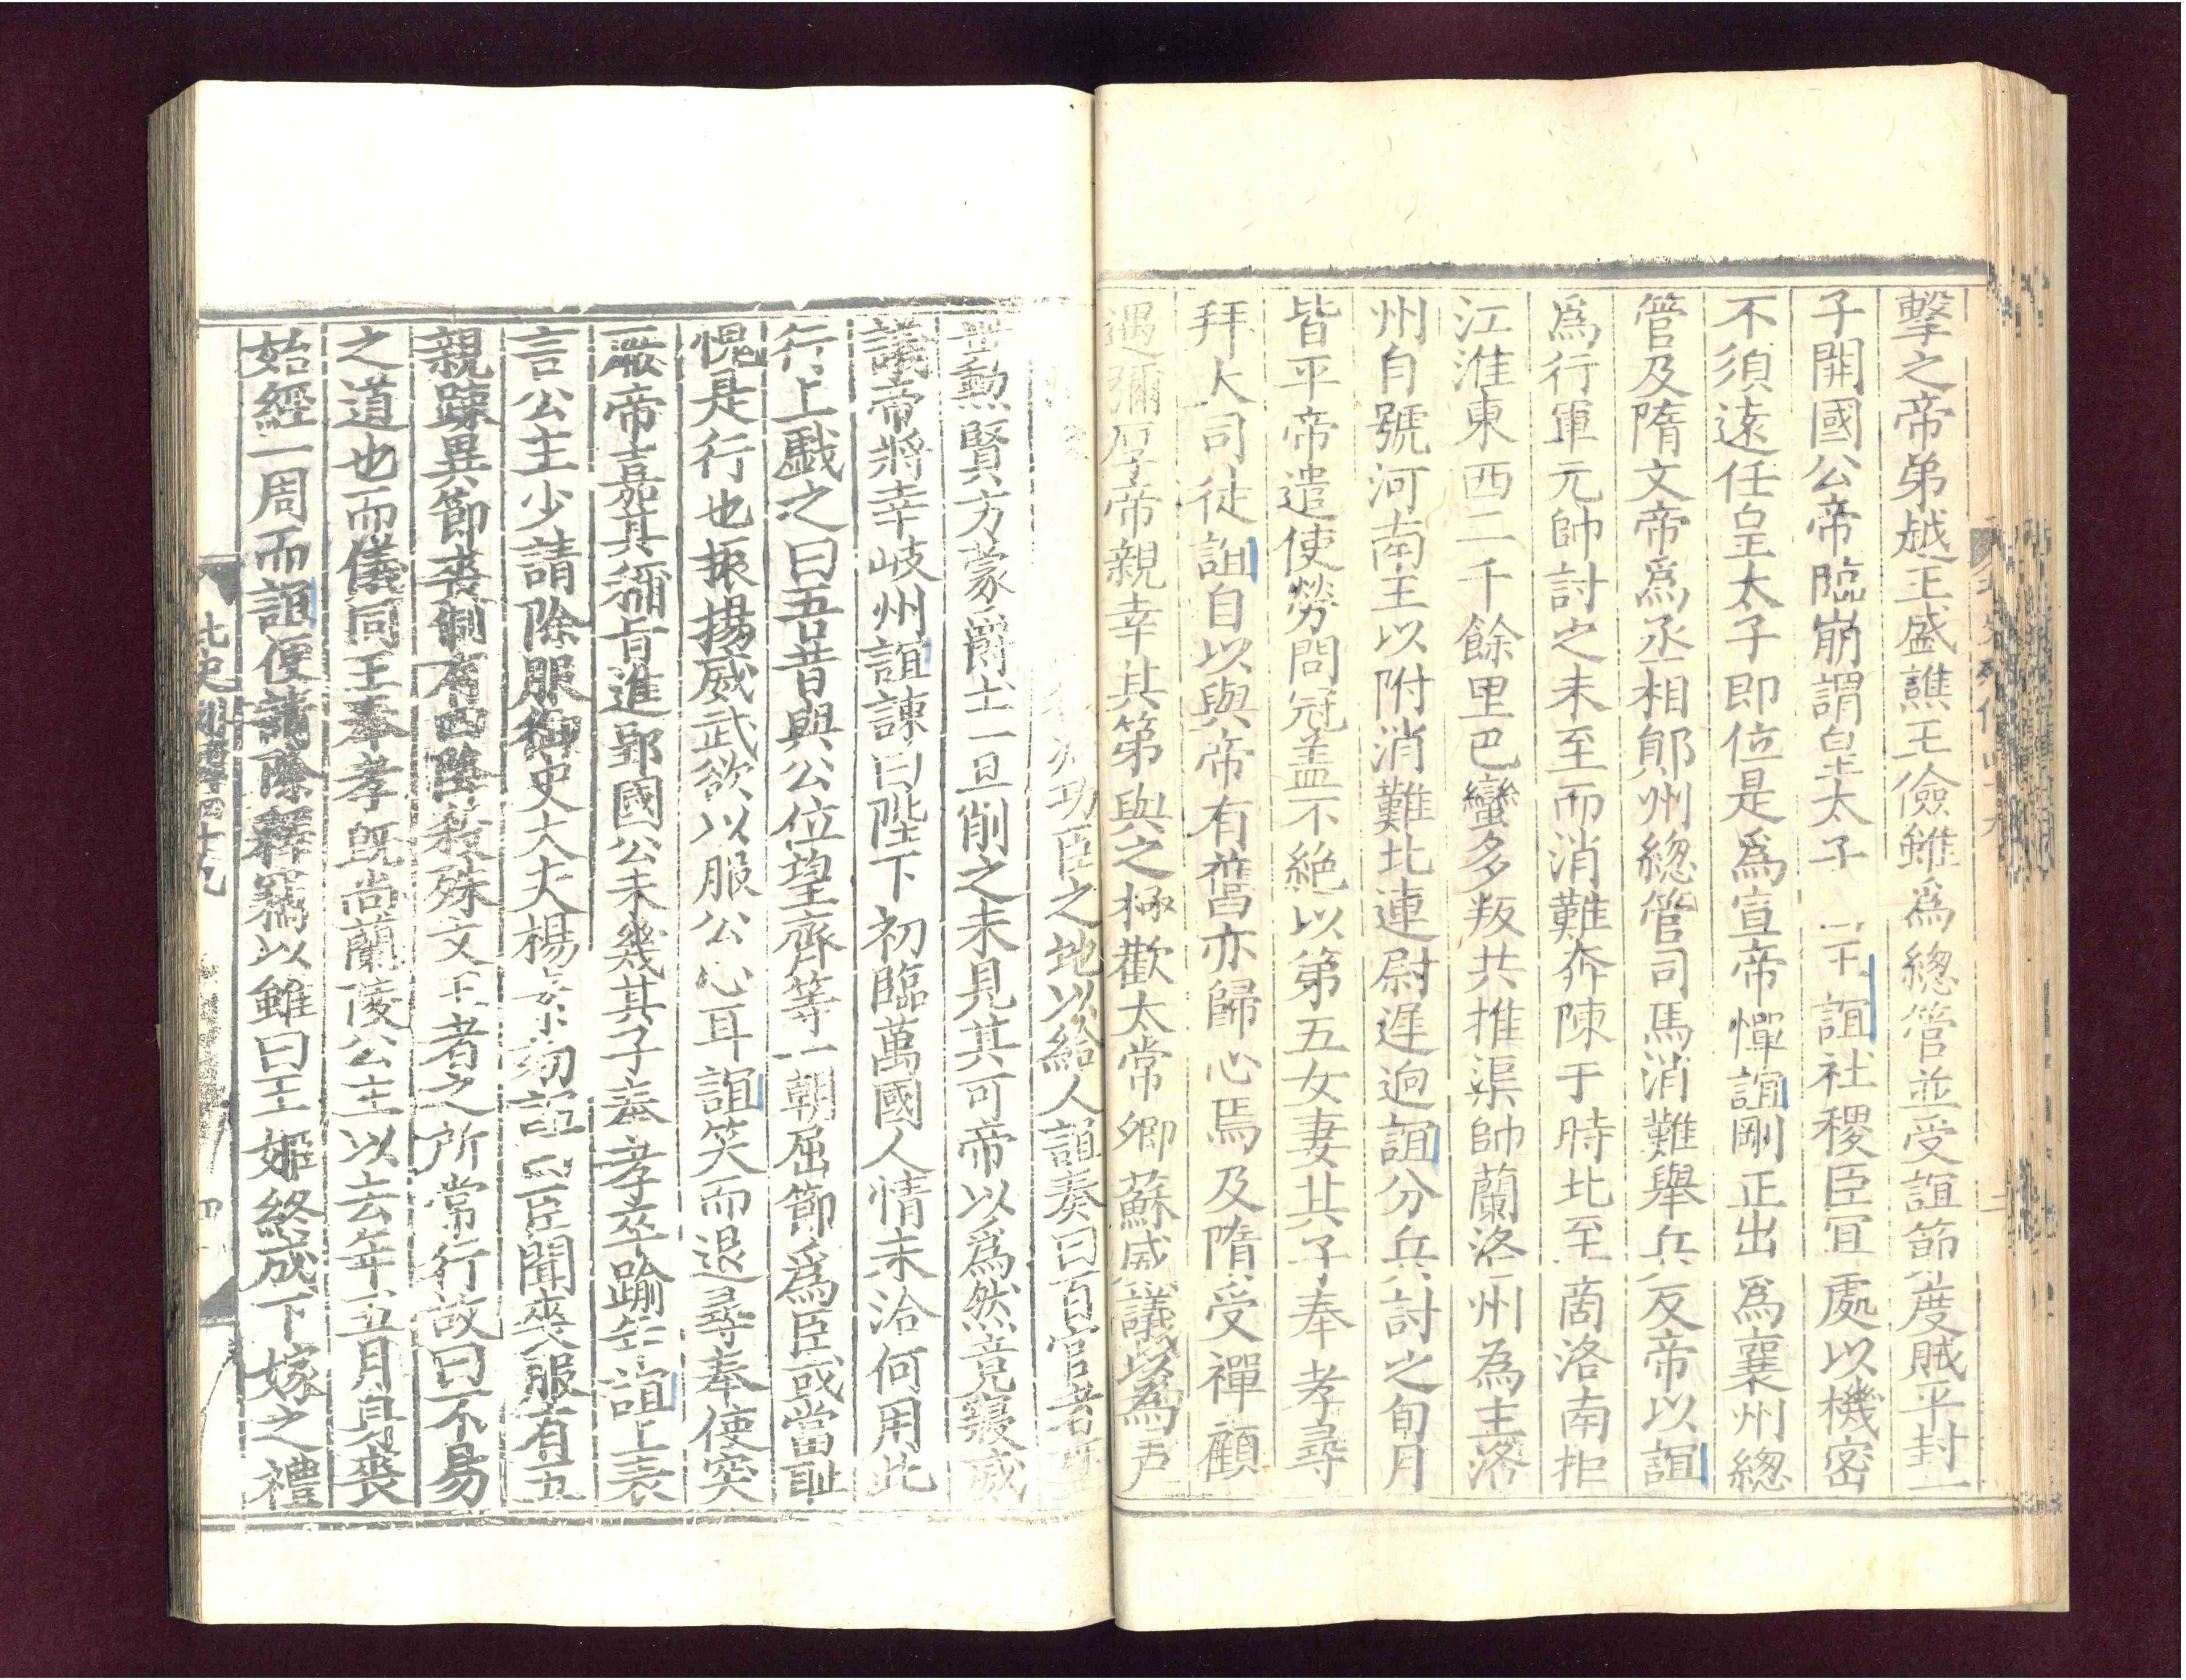 擊之帝弟越王盛譙王儉雖爲總管並受誼節度賊平封一
子開國公帝臨崩謂皇太子 誼社稷臣宜處以機密
不須遠任皇太子即位是爲宣帝憚誼剛正出爲襄州總
管及隋文帝爲丞相鄖州總管司馬消難舉兵反帝以誼
爲行軍元帥討之未至而消難奔陳于時北至商洛南拒
江淮東西二千餘里巴蠻多叛共推渠帥蘭洛州為主洛
州自號河南王以附消難北連尉遲迥誼分兵討之旬月
皆平帝遣使勞問冠盖不絶以第五女妻其子奉孝尋
拜大司徒誼自以與帝有舊亦歸心焉及隋受禪顧
遇彌厚帝親幸其第與之極歡太常卿蘇威議以爲戶
功臣之地以給人誼奏曰百官者
世勳賢方蒙爵土一旦削之未見其可帝以爲然竟寢威
議帝將幸岐州誼諫曰陛下初臨萬國人情未洽何用此
行上戲之曰吾昔與公位望齊等一朝屈節爲臣或當耻
愧是行也振揚威武欲以服公心耳誼笑而退尋奉使突
厥帝嘉其稱旨進郢國公未幾其子奉孝卒踰年誼上表
言公主少請除服御史大夫楊素劾誼曰臣聞喪服有五
親踈異節喪制有四降殺殊文王者之所常行故曰不易
之道也而儀同王奉孝旣尚蘭陵公主以去年五月身喪
始經一周而誼便請除釋竊以雖曰王姬終成下嫁之禮
北史列傳四十九
四